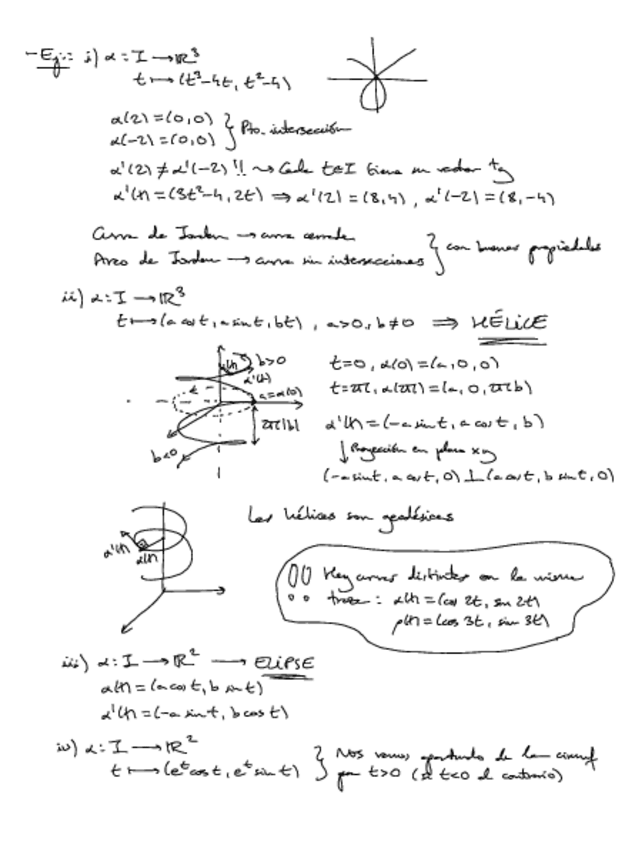 - Ej.: i) α: I → ℝ³
t ↦ (t³-4t, t²-4)
α(2) = (0,0)
α(-2) = (0,0) } Pto. intersección
α'(2) ≠ α'(-2) !! ⇝ Cada t∈I tiene un vector tg
α'(t) = (3t²-4, 2t) ⇒ α'(2) = (8,4), α'(-2) = (8,-4)
Curva de Jordan → curva cerrada
Arco de Jordan → curva sin intersecciones } con buenas propiedades
ii) α: I → ℝ³
t ↦ (a cos t, a sin t, bt), a>0, b≠0 ⇒ HÉLICE
α(t) b>0
α'(t)
a=α(0)
2π|b|
b<0
t=0, α(0) = (a, 0, 0)
t=2π, α(2π) = (a, 0, 2πb)
α'(t) = (-a sin t, a cos t, b)
↓ Proyección en plano xy
(-a sin t, a cos t, 0) ⊥ (a cos t, b sin t, 0)
α'(t)
α(t)
Las hélices son geodésicas
!! Hay curvas distintas con la misma
traza: α(t) = (cos 2t, sin 2t)
ρ(t) = (cos 3t, sin 3t)
iii) α: I → ℝ² → ELIPSE
α(t) = (a cos t, b sin t)
α'(t) = (-a sin t, b cos t)
iv) α: I → ℝ²
t ↦ (eᵗ cos t, eᵗ sin t) } Nos vamos apartando de la circunf
por t>0 (si t<0 al contrario)